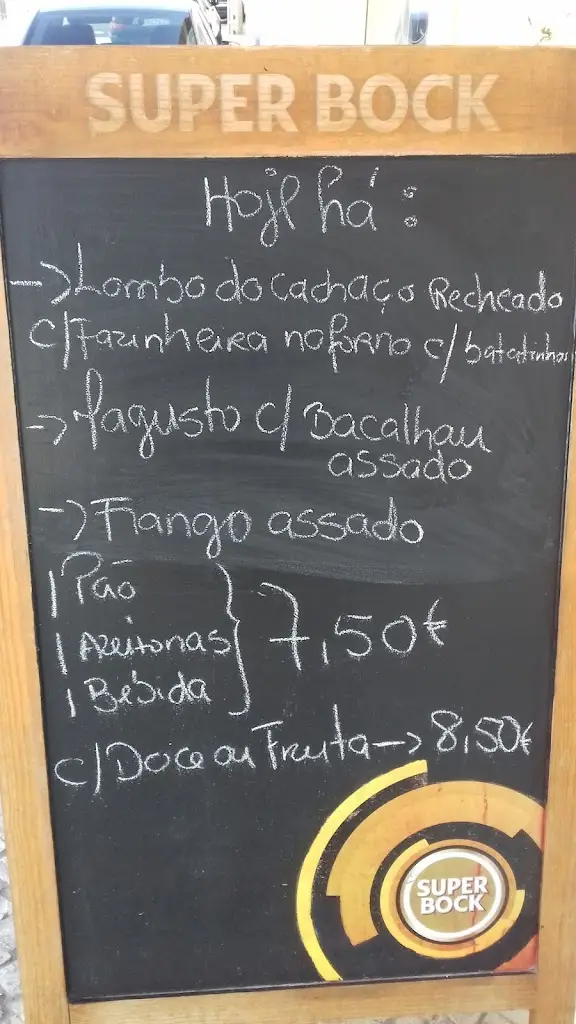 SUPER BOCK
Hoje há:
-> Lombo do cachaço Recheado
c/ Farinheira no forno c/ batatinhas
-> Magusto c/ Bacalhau
assado
-> Frango assado
1 Pão
1 Azeitonas
1 Bebida
7,50€
c/ Doce ou Fruta -> 8,50€
SUPER
BOCK